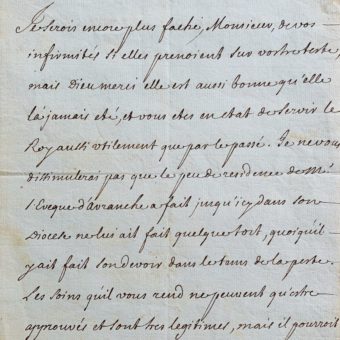 Je serois encore plus faché, Monsieur, de vos
infirmités si elles prenoient sur vostre teste,
mais Dieu merci elle est aussi bonne qu'elle
l'a jamais eté, et vous etes en etat de servir le
Roy aussi utilement que par le passé. Je ne vous
dissimulerai pas que le peu de residence de Mr
l'Eveque d'Avranche a fait jusqu'icy dans son
Diocese ne lui ait fait quelque tort, quoiqu'il
y ait fait son devoir dans le tems de la peste.
Les soins qu'il vous rend ne peuvent qu'estre
approuvés et sont tres legitimes, mais il pourroit